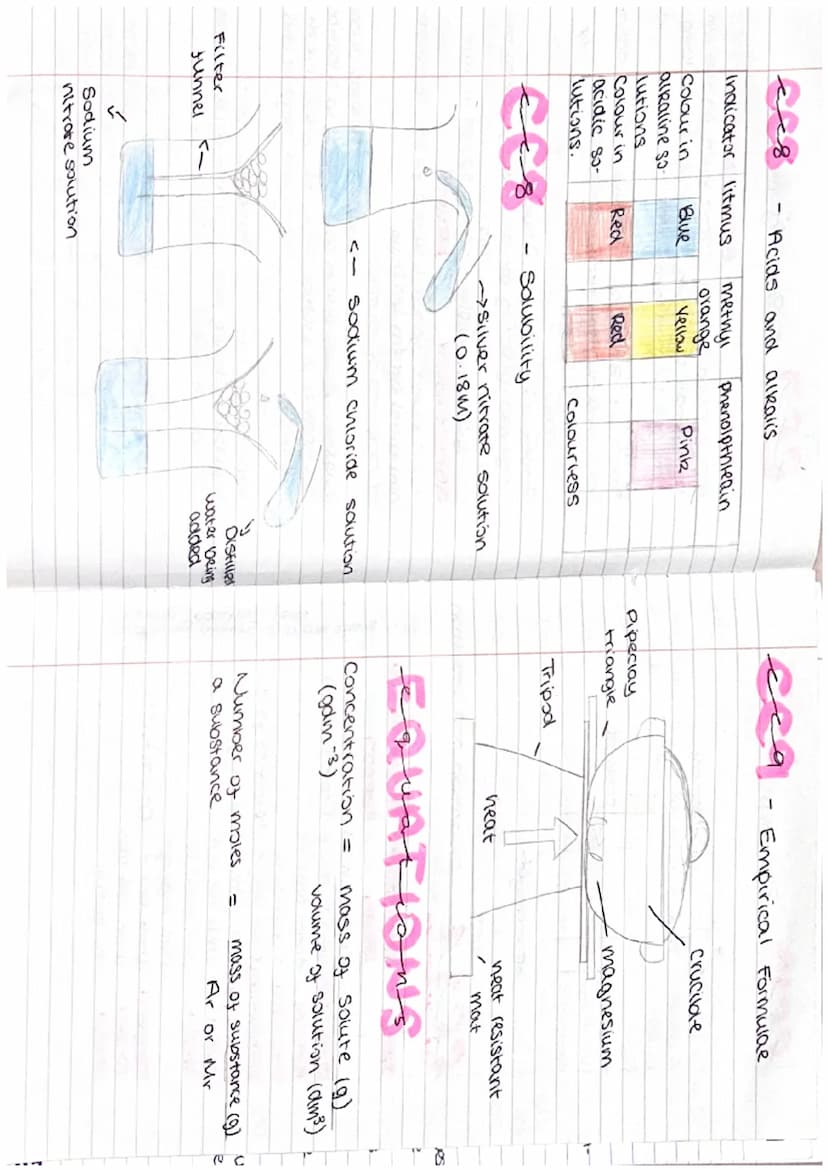 CC8 - Acids and alkalis
Indicator litmus methyl phenolpthlein
orange
Colour in Blue Yellow Pink
alkaline so-
lutions
Colour in Red Red
acidic so-
lutions.
Colourless
CC8 - Solubility
→ Silver nitrate solution
(0.18M)
<— sodium chloride solution
Filter
funnel
<—
Sodium
nitrate solution
Distilled
water being
added
CC9 - Empirical Formulae
Pipeclay
triangle
Tripod
crucible
magnesium
heat
heat resistant
mat
EQUATIONS
Concentration = mass of solute (g)
(gdm⁻³) volume of solution (dm³)
Number of moles = mass of substance (g)
a substance Ar or Mr